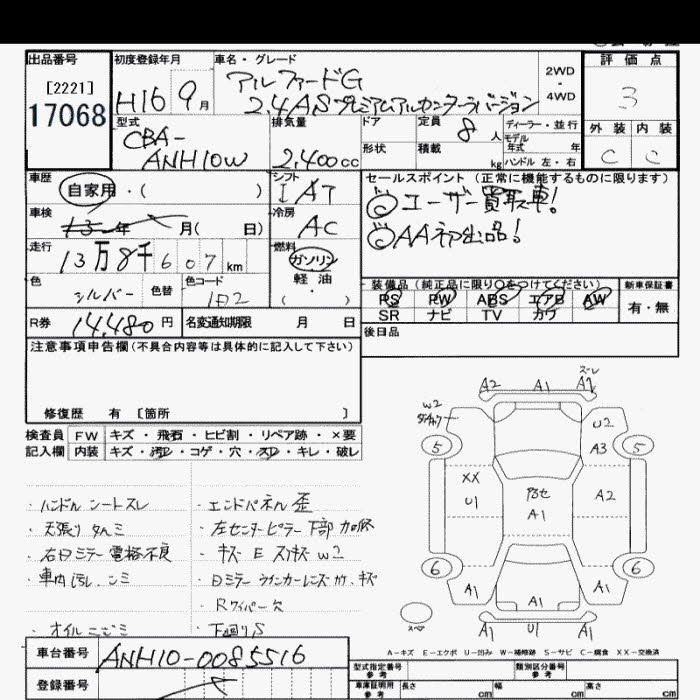 出品番号
[2221]
17068
初度登録年月
H16 9月
車名・グレード
アルファードG
2.4 AS プレミアムアルカンターラバージョン
2WD
・
4WD
評価点
3
外装 内装
C C
型式
CBA-
ANH10W
排気量
2,400cc
ドア
定員
8人
ディーラー・並行
モデル
年式 年
形状
積載
kg
ハンドル 左・右
車歴
自家用・( )
シフト
I AT
車検
年 月( 日)
冷房
AC
走行
13万8千607km
燃料
ガソリン
軽油
( )
色
シルバー
色替
色カラーコード
1D2
R券
14,480円
名変通知期限 月 日
セールスポイント(正常に機能するものに限ります)
◎ユーザー買取車!
◎AA初出品!
装備品(純正品に限り○をつけてください)
新車保証書
PS PW ABS エアB AW
有・無
SR ナビ TV カワ
後日品
注意事項申告欄(不具合内容等は具体的に記入して下さい)
修復歴 有 [箇所 ]
検査員 FW キズ・飛石・ヒビ割・リペア跡・×要
記入欄 内装 キズ・汚レ・コゲ・穴・スレ・キレ・破レ
・ハンドル シートスレ
・天張り タルミ
・右Dミラー 電格不良
・車内 汚レ、シミ
・オイルにじミ
・エンドパネル 歪
・左センターピラー下部 加修
・キズ E スリキズ W2
・Dミラー ウインカーレンズ カケ、キズ
・Rワイパー欠
・下回りS
A2 A1 スーレ
W2
U2
5 5
A3
XX
U1
A1
A2
6 6
A1 A1 A1
スペア
A1 U1 A1
A-キズ E-エクボ U-凹み W-補修跡 S-サビ C-腐食 XX-交換済
車台番号
ANH10-0085516
登録番号
型式指定番号
参考
類別区分番号
参考
車庫証明用
参考
長さ cm
幅 cm
高さ cm